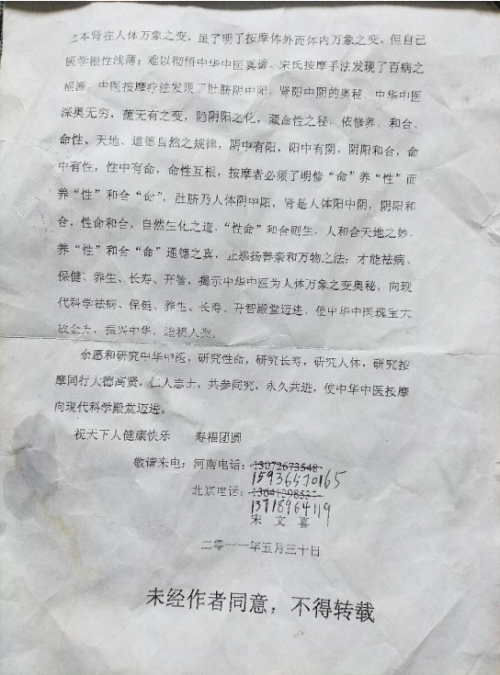 之本肾在人体万象之变，虽了明了按摩体外而体内万象之变，但自己
医学根性浅薄；难以彻悟中华中医真谛。宋氏按摩手法发现了百病之
根源，中医按摩疗法发现了肚脐阴中阳，肾阳中阴的奥秘，中华中医
深奥无穷，蕴无有之变，隐阴阳之化，藏命性之秘，依修养、和合、
命性、天地、道德自然之规律，阴中有阳，阳中有阴，阴阳和合，命
中有性，性中有命，命性互根，按摩者必须了明修“命”养“性”而
养“性”和合“命”，肚脐乃人体阴中阳，肾是人体阳中阴，阴阳和
合，性命和合，自然生化之道，“性命”和合则生，人和合天地之妙，
养“性”和合“命”通德之真，止恶扬善亲和万物之法；才能祛病、
保健、养生、长寿、开智，揭示中华中医为人体万象之变奥秘，向现
代科学祛病、保健、养生、长寿、开智殿堂迈进，使中华中医瑰宝大
放金光，振兴中华，造福人类。
余愿和研究中华中医，研究性命，研究长寿，研究人体，研究按
摩同行大德高贤，仁人志士，共参同究，永久共进，使中华中医按摩
向现代科学殿堂迈进。
祝天下人健康快乐 寿福团圆
敬请来电：河南电话：13072673548
15936570165
北京电话：
13718964119
宋文喜
二零一一年五月三十日
未经作者同意，不得转载